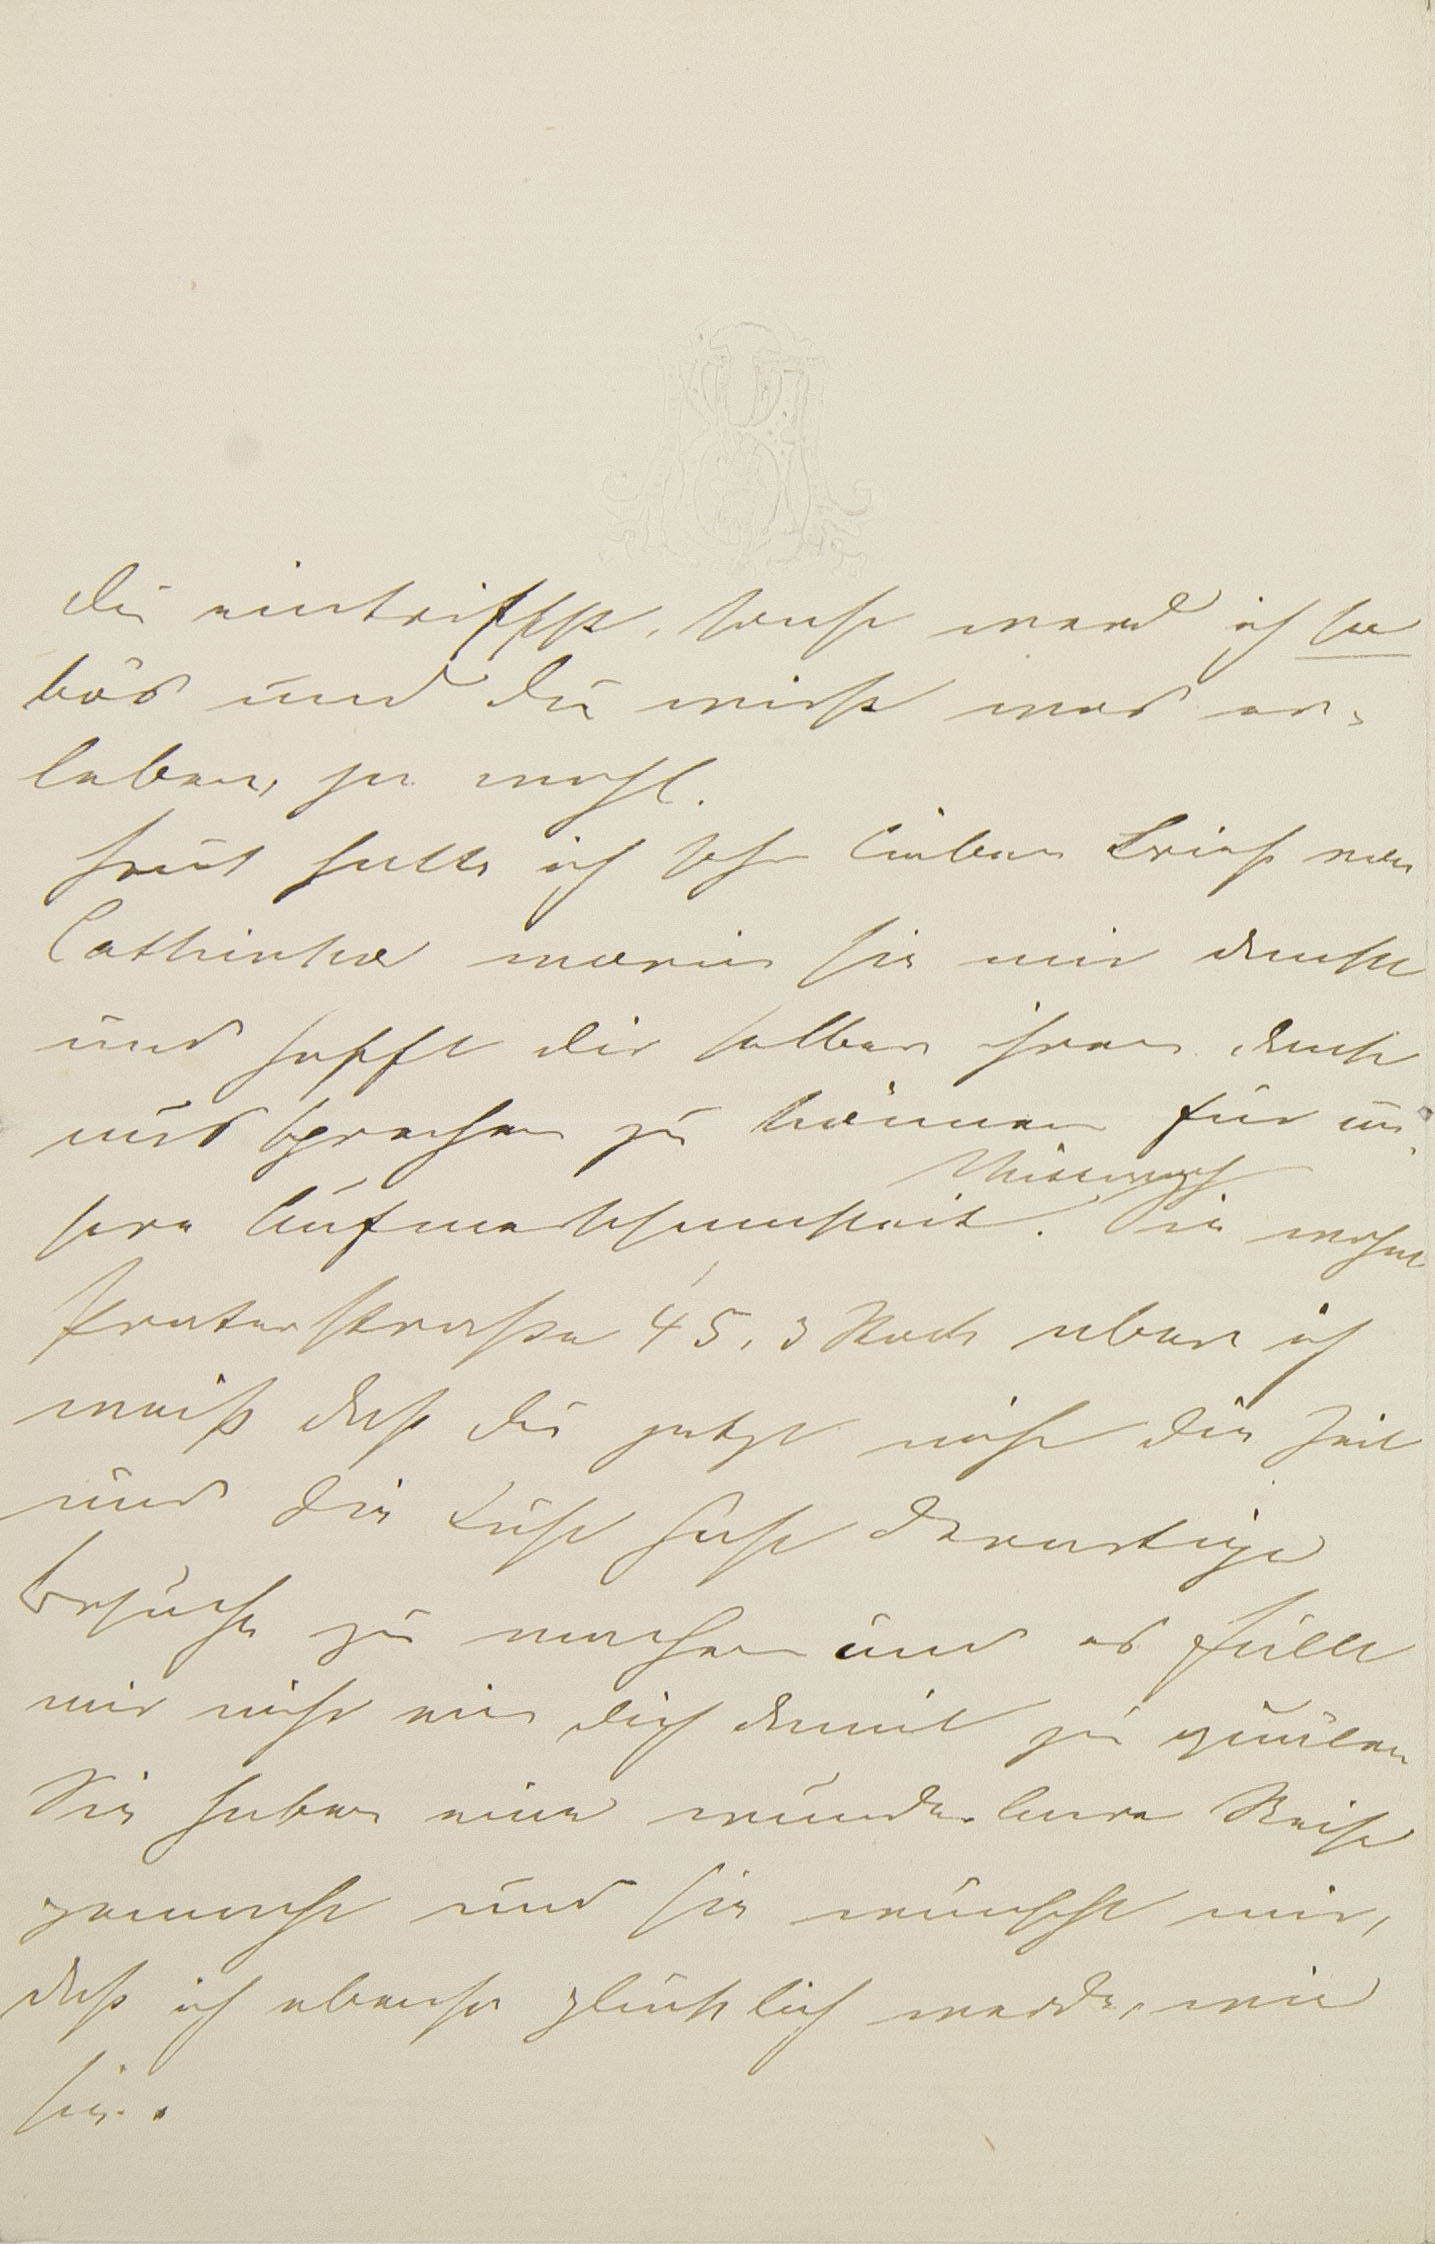 du eintriffst, sonst werd ich so
bös und du wirst was er-
leben, ja wohl.
Heut hatte ich sehr lieben Brief von
Cathinka worin sie mir dankt
und hofft dir selber ihren Dank
aussprechen zu können für un-
sere Aufmerksamkeit. Sie wohnt
Mittwoch
Praterstrasse 45, 3 Stock aber ich
weiß daß du jetzt nicht die Zeit
und die Lust hast derartige
Besuche zu machen und es fällt
mir nicht ein dich damit zu quälen
Sie haben eine wunderbare Reise
gemacht und sie wünscht mir,
daß ich ebenso glücklich werde, wie
sie.